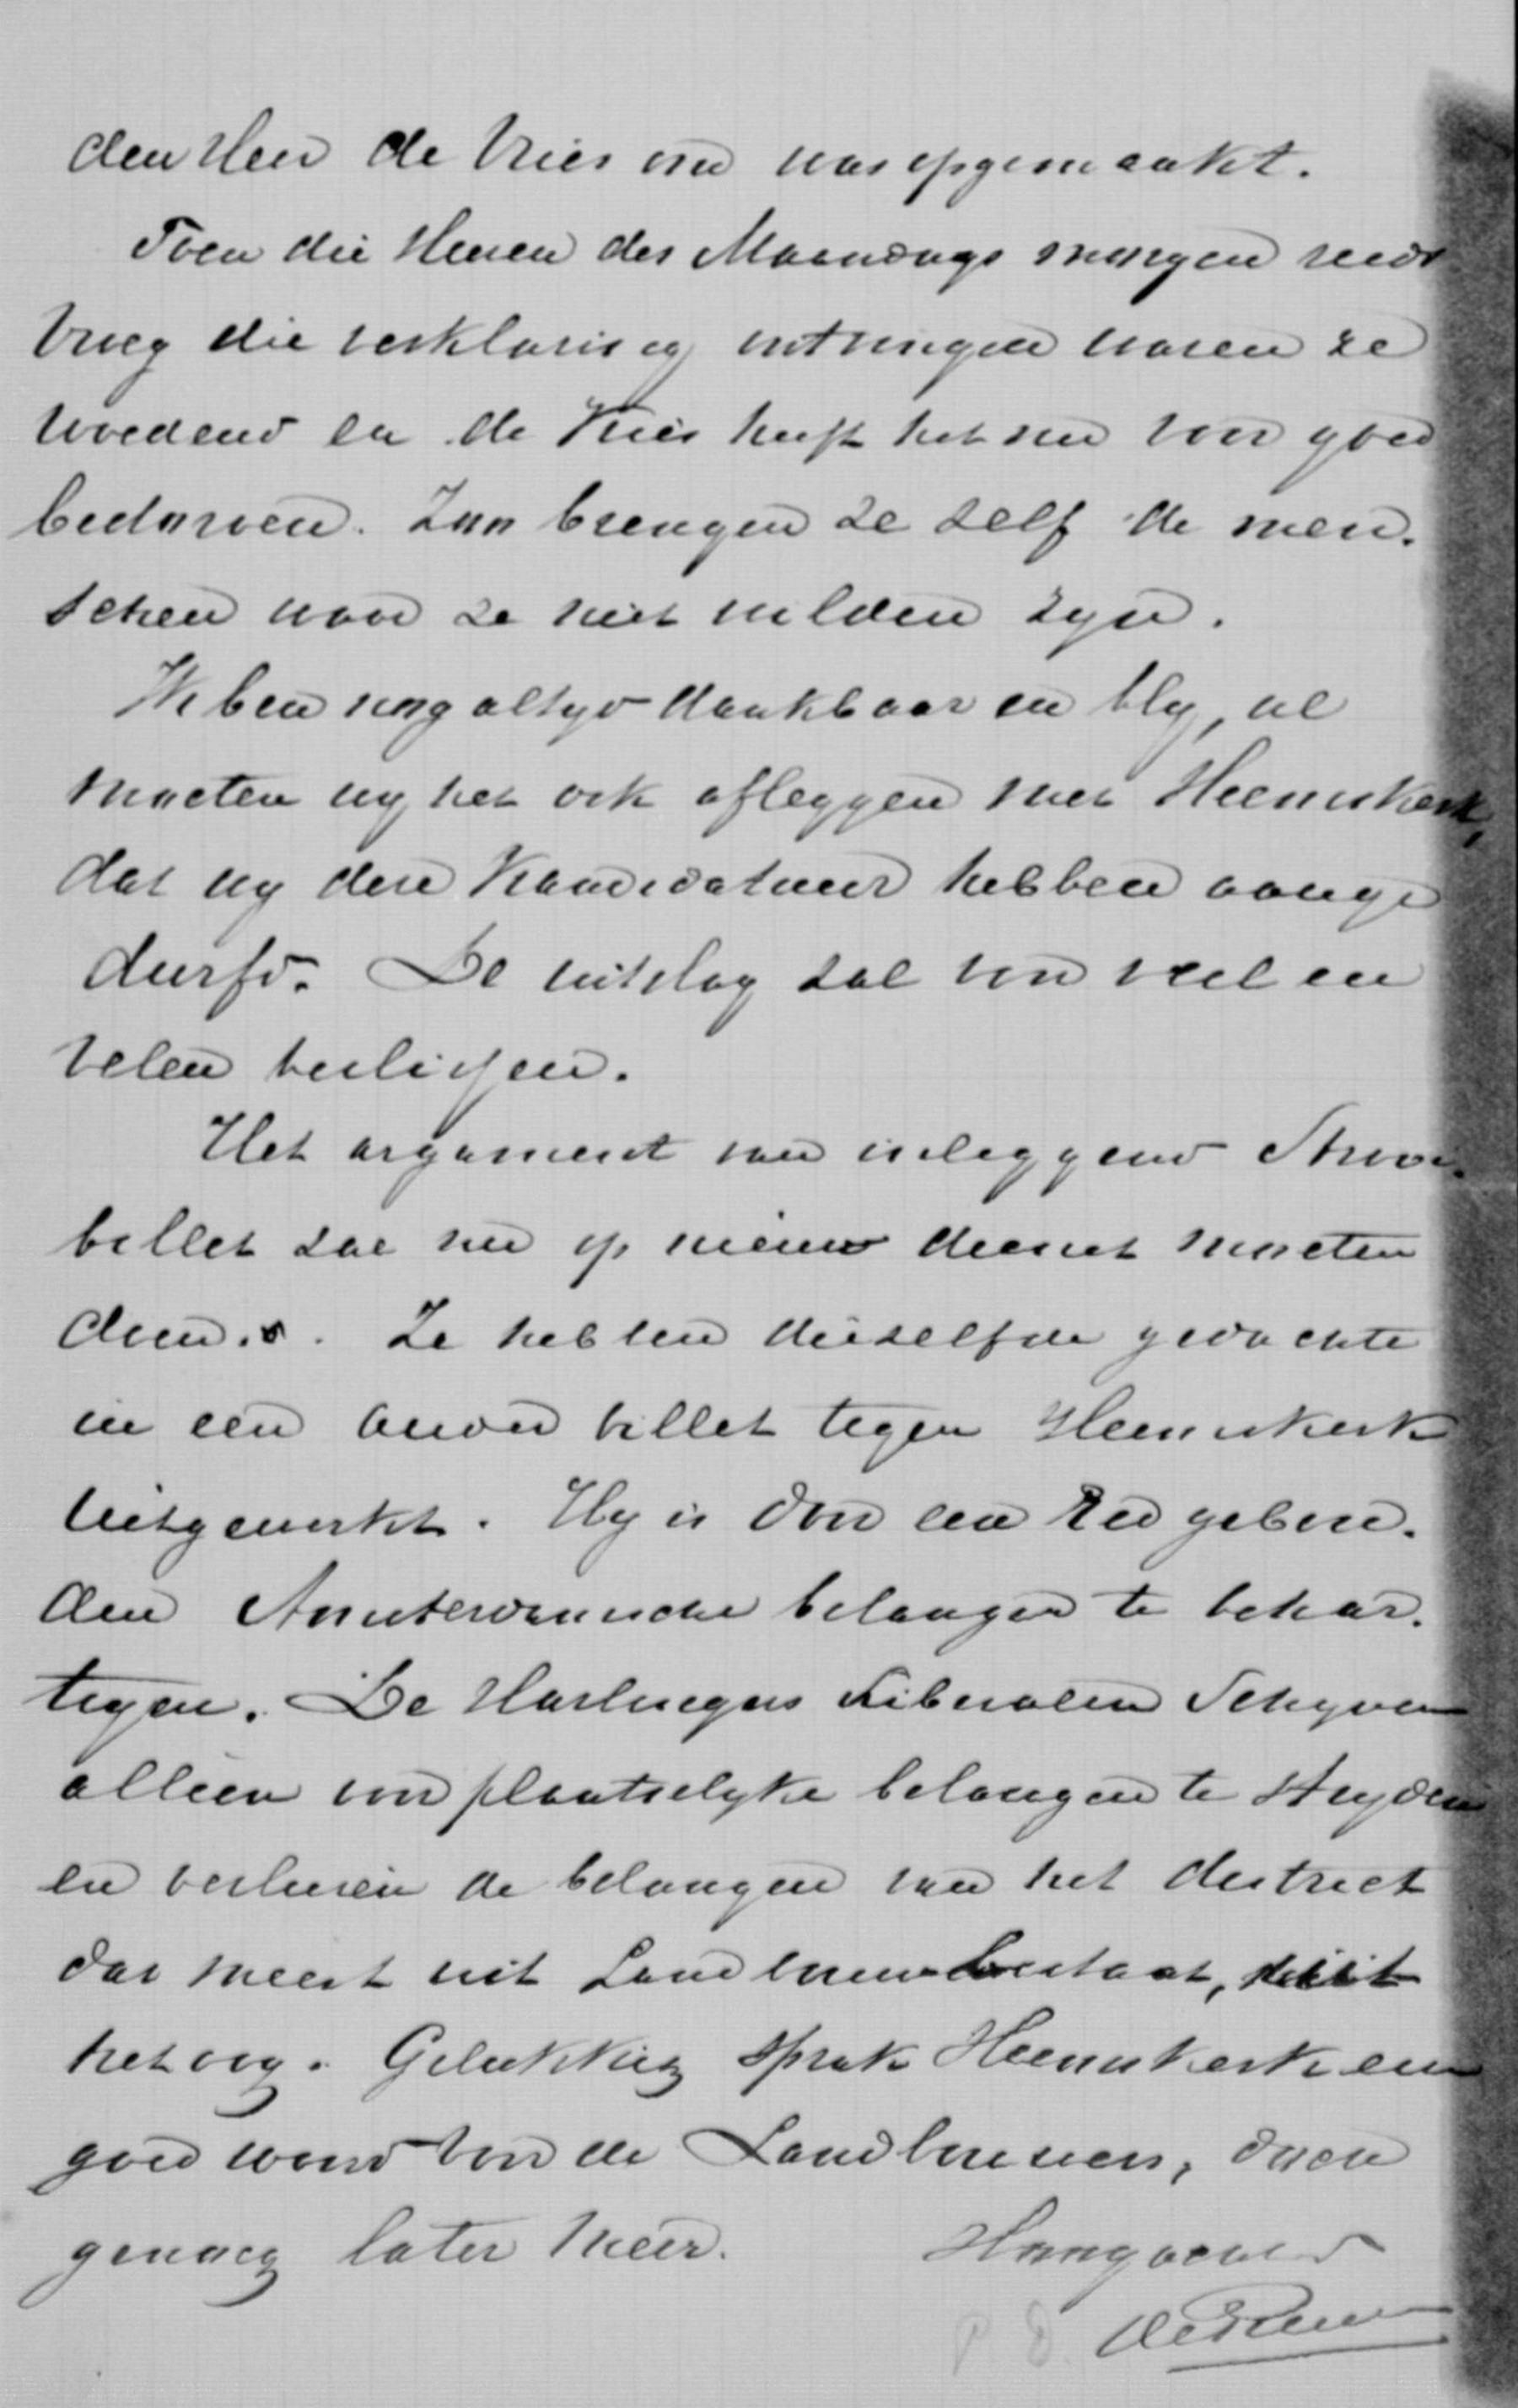 den Heer de Vries om was opgemaakt.
Toen die Heeren des Maandags morgen reeds
vroeg die verklaring ontvingen waren ze
woedend en de Vries heeft het nu voor goed
bedorven. Zoo brengen ze zelf de men-
schen waar ze niet wilden zyn.
Ik ben nog altyd dankbaar en bly, al
moeten wy het ook afleggen met Heemskerk,
dat wy deze Kandidatuur hebben aange
durfd. De uitslag zal van veel en
velen beslissen.
Het argument van inleggend Strooi-
billet zal nu op nieuw dienst moeten
doen. Ze hebben diezelfde gedachte
in een ander billet tegen Heemskerk
uitgewerkt. Hy is door een Eed gebon-
den Amsterdamsche belangen te behar-
tigen. De Harlinger Liberalen Schynen
alleen voor plaatselyke belangen te stryden
en verliezen de belangen van het district
dat meest uit Landbouw bestaat, uit
het oog. Gelukkig sprak Heemskerk een
goed woord voor de Landbouwers, doch
genoeg later meer. Hoogachtend